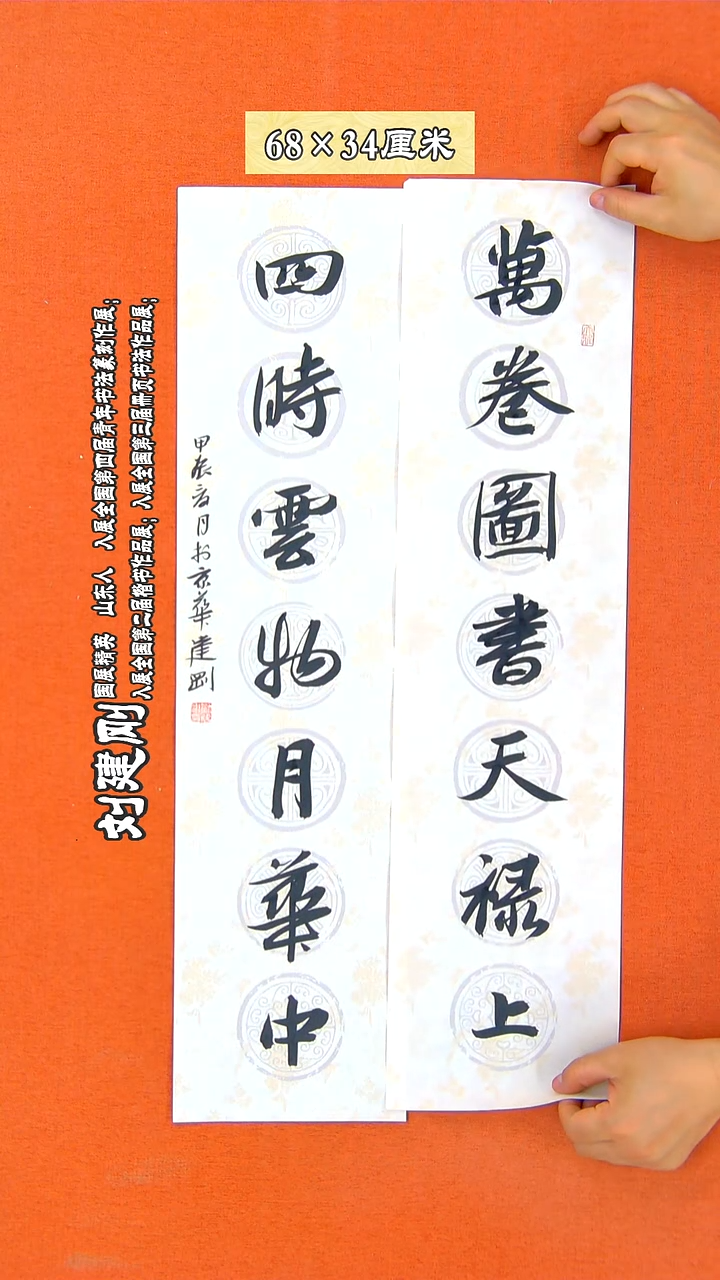 68×34厘米
萬卷圖書天禄上
四時雲物月華中
甲辰亥月於京華建剛
刘建刚
国展精英 山东人 入展全国第四届青年书法篆刻作展；
入展全国第二届楷书作品展；入展全国第三届册页书法作品展；